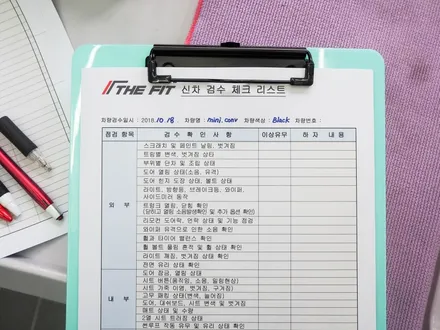 THE FIT 신차 검수 체크 리스트
차량검수일시 : 2018. 10 / 8. 차량명 : mini. conv 차량색상 : Black 차량번호 :
점검 항목 검 수 확 인 사 항 이상유무 하 자 내 용
외 부
스크래치 및 페인트 날림, 벗겨짐
트림별 변색, 벗겨짐 상태
부위별 단차 및 조립 상태
도어 열림 상태(소음, 유격)
도어 힌지 도장 상태, 볼트 상태
라이트, 방향등, 브레이크등, 와이퍼,
사이드미러 동작
트렁크 열림, 닫힘 확인
(닫히고 열림 소음발생확인 및 추가 옵션 확인)
리모컨 도어락, 언락 상태 및 기능 점검
와이퍼 유격으로 인한 소음 확인
휠과 타이어 밸런스 확인
휠 볼트 풀린 흔적 및 휠 상태 확인
라이트 깨짐, 벗겨짐 상태 확인
전면 유리 상태 확인
내 부
도어 잠금, 열림 상태
시트 버튼(움직임, 소음, 밀림현상)
시트 가죽 이염, 벗겨짐, 구겨짐)
고무 패킹 상태(변색, 늘어짐)
도어, 대쉬보드, 시트 변색 및 벗겨짐
매트 상태 및 수량
2열 시트 트리밍 상태
썬루프 작동 유무 및 유리 상태 확인